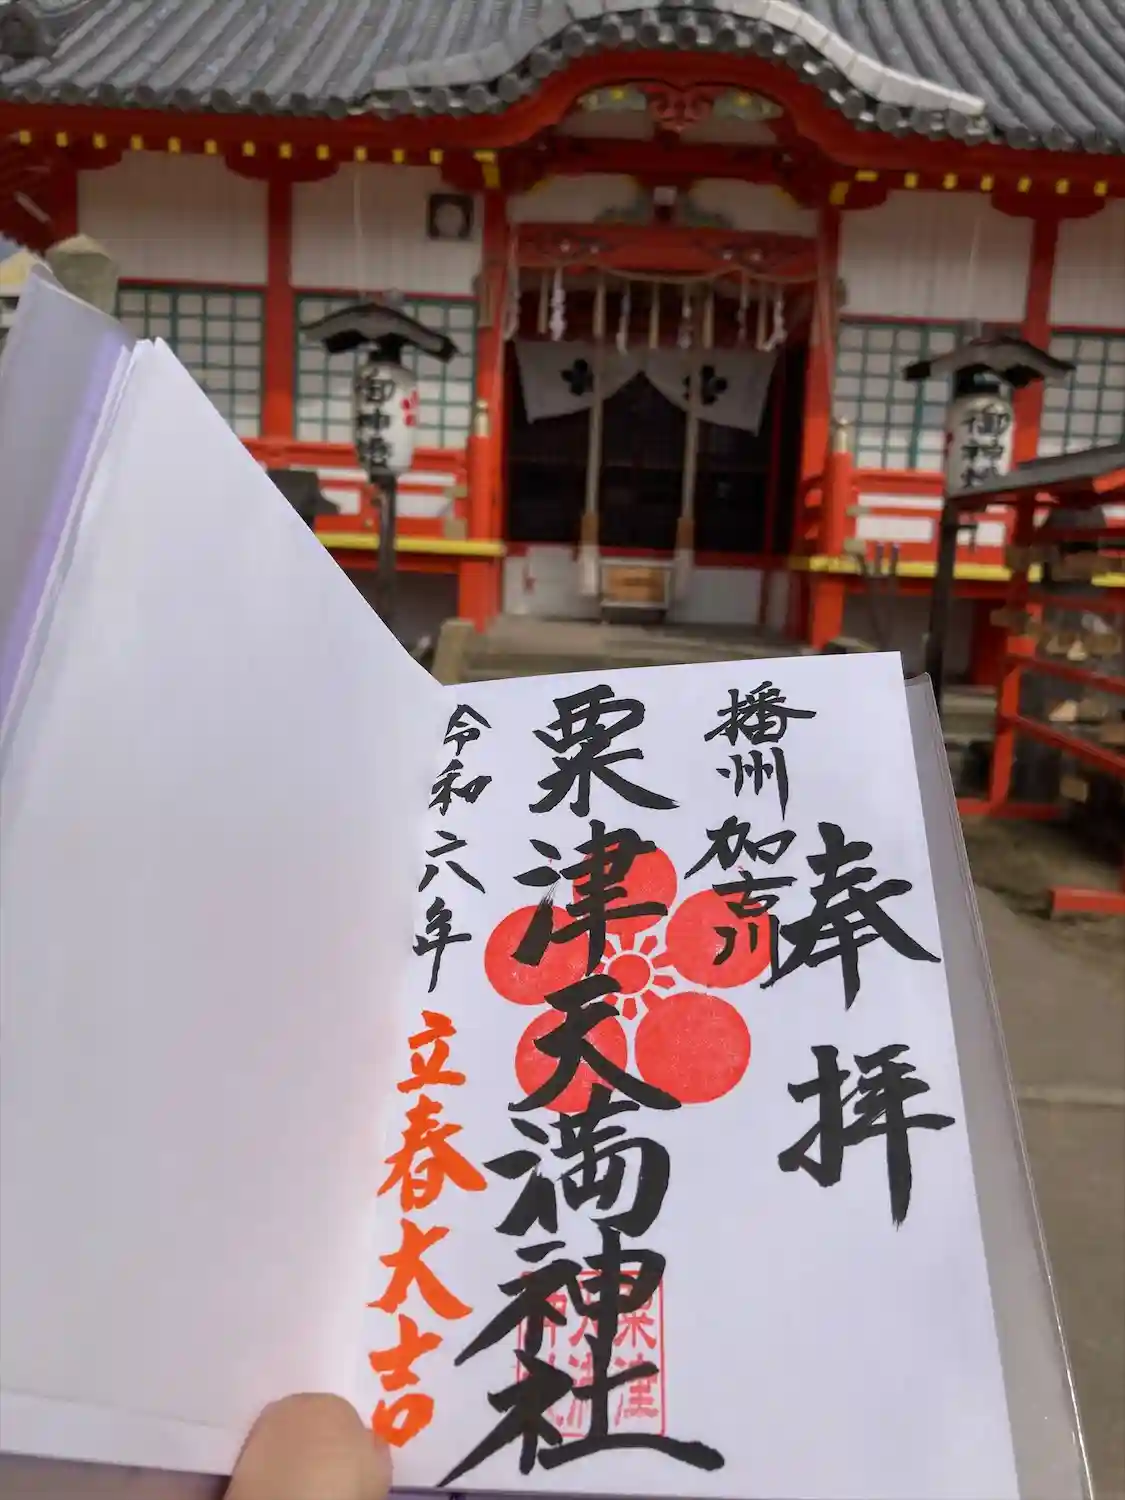 御神燈
御神燈
奉拝
播州加古川
粟津天満神社
令和六年
立春大吉
粟津